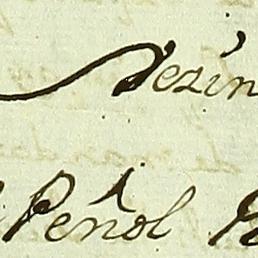 Vezin
Peñol